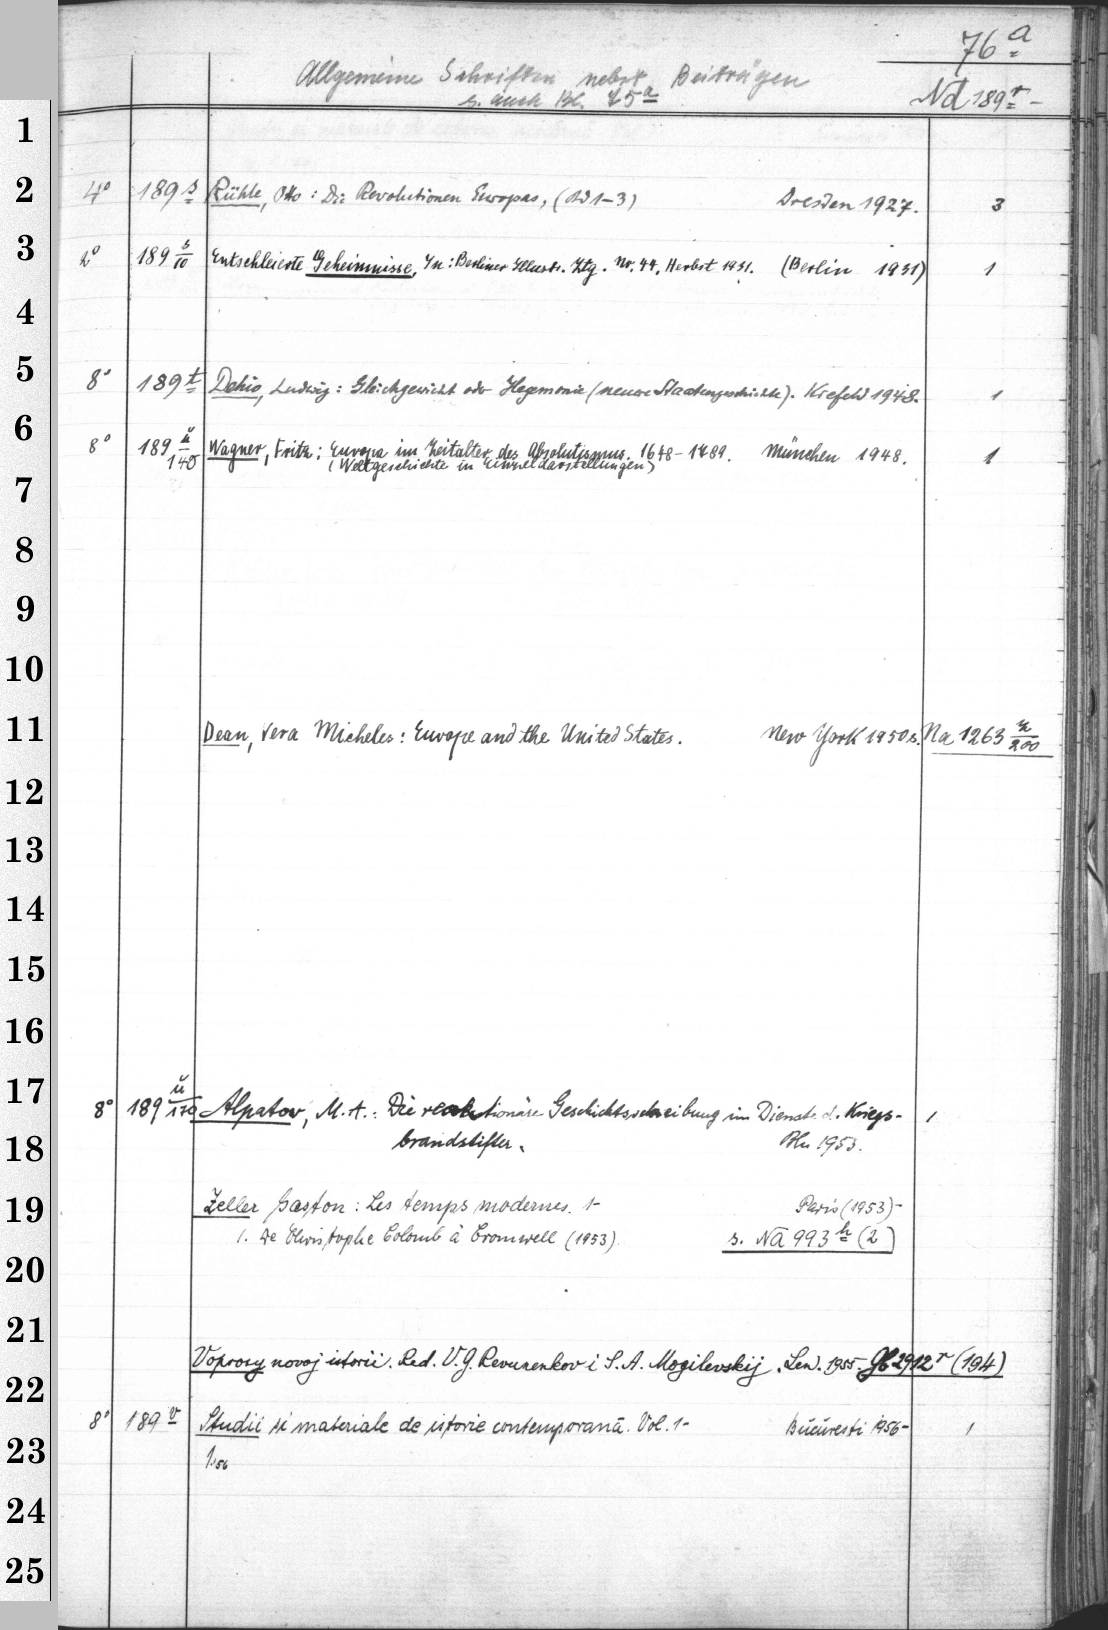 76 a
Allgemeine Schriften nebst Beiträgen
s. auch Bl. 75 a
Nd 189 r -
1
2
3
4
5
6
7
8
9
10
11
12
13
14
15
16
17
18
19
20
21
22
23
24
25
4° 189 s Rühle, Otto: Die Revolutionen Europas, (Bd 1-3) Dresden 1927. 3
2° 189 s/10 Entschleierte Geheimnisse, In: Berliner Illustr. Ztg. Nr. 44, Herbst 1931. (Berlin 1931) 1
8° 189 t Dehio, Ludwig: Gleichgewicht oder Hegemonie (neuere Staatengeschichte). Krefeld 1948. 1
8° 189 u/140 Wagner, Fritz: Europa im Zeitalter des Absolutismus. 1648-1789. München 1948. 1
(Weltgeschichte in Einzeldarstellungen)
Dean, Vera Micheles: Europe and the United States. New York 1950 s. Na 1263 /200
8° 189 u/170 Alpatov, M.A.: Die reaktionäre Geschichtsschreibung im Dienste d. Kriegs- 1
brandstifter. Bln 1953.
Zeller Gaston: Les temps modernes. 1- Paris (1953)-
1. De Christophe Colomb à Cromwell (1953) s. NA 993 h (2)
Voprosy novoj istorii. Red. V.G. Revunenkov i S.A. Mogilevskij. Len. 1955. 2912 r (194)
8° 189 v Studii si materiale de istorie contemporană. Vol. 1- Bucuresti 1956- 1
1.56